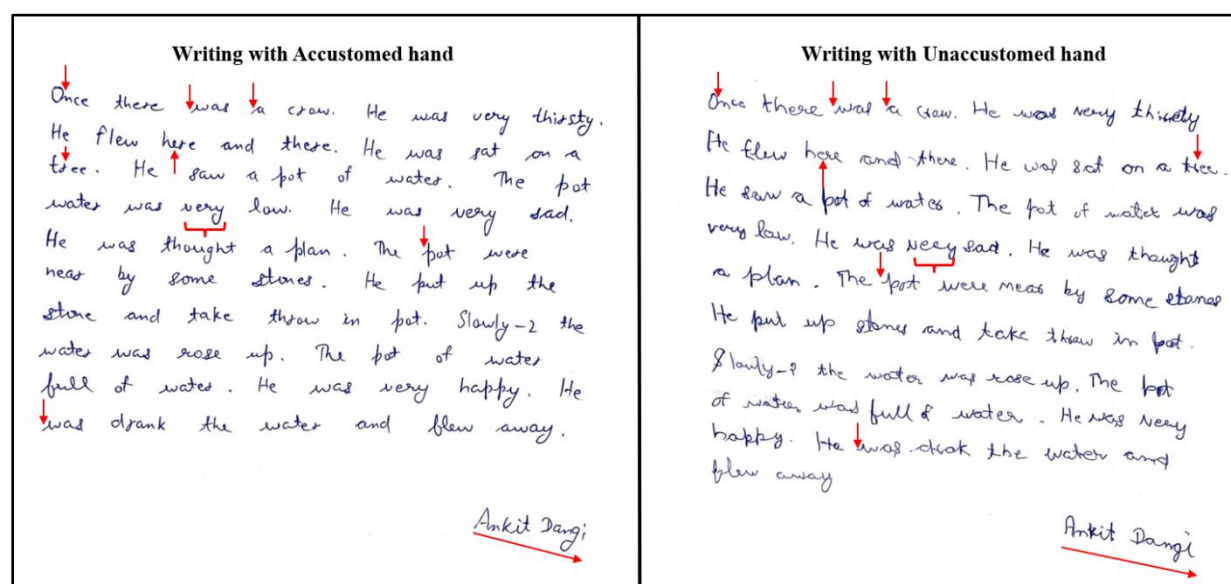 Writing with Accustomed hand
Once there was a crow. He was very thirsty.
He flew here and there. He was sat on a
tree. He saw a pot of water. The pot
water was very low. He was very sad.
He was thought a plan. The pot were
near by some stones. He put up the
stone and take throw in pot. Slowly-2 the
water was rose up. The pot of water
full of water. He was very happy. He
was drank the water and flew away.
Ankit Dangi
Writing with Unaccustomed hand
Once there was a crow. He was very thirsty
He flew here and there. He was sat on a tree.
He saw a pot of water. The pot of water was
very low. He was very sad. He was thought
a plan. The pot were near by some stones
He put up stones and take throw in pot.
Slowly-2 the water was rose up. The pot
of water was full of water. He was very
happy. He was drak the water and
flew away
Ankit Dangi